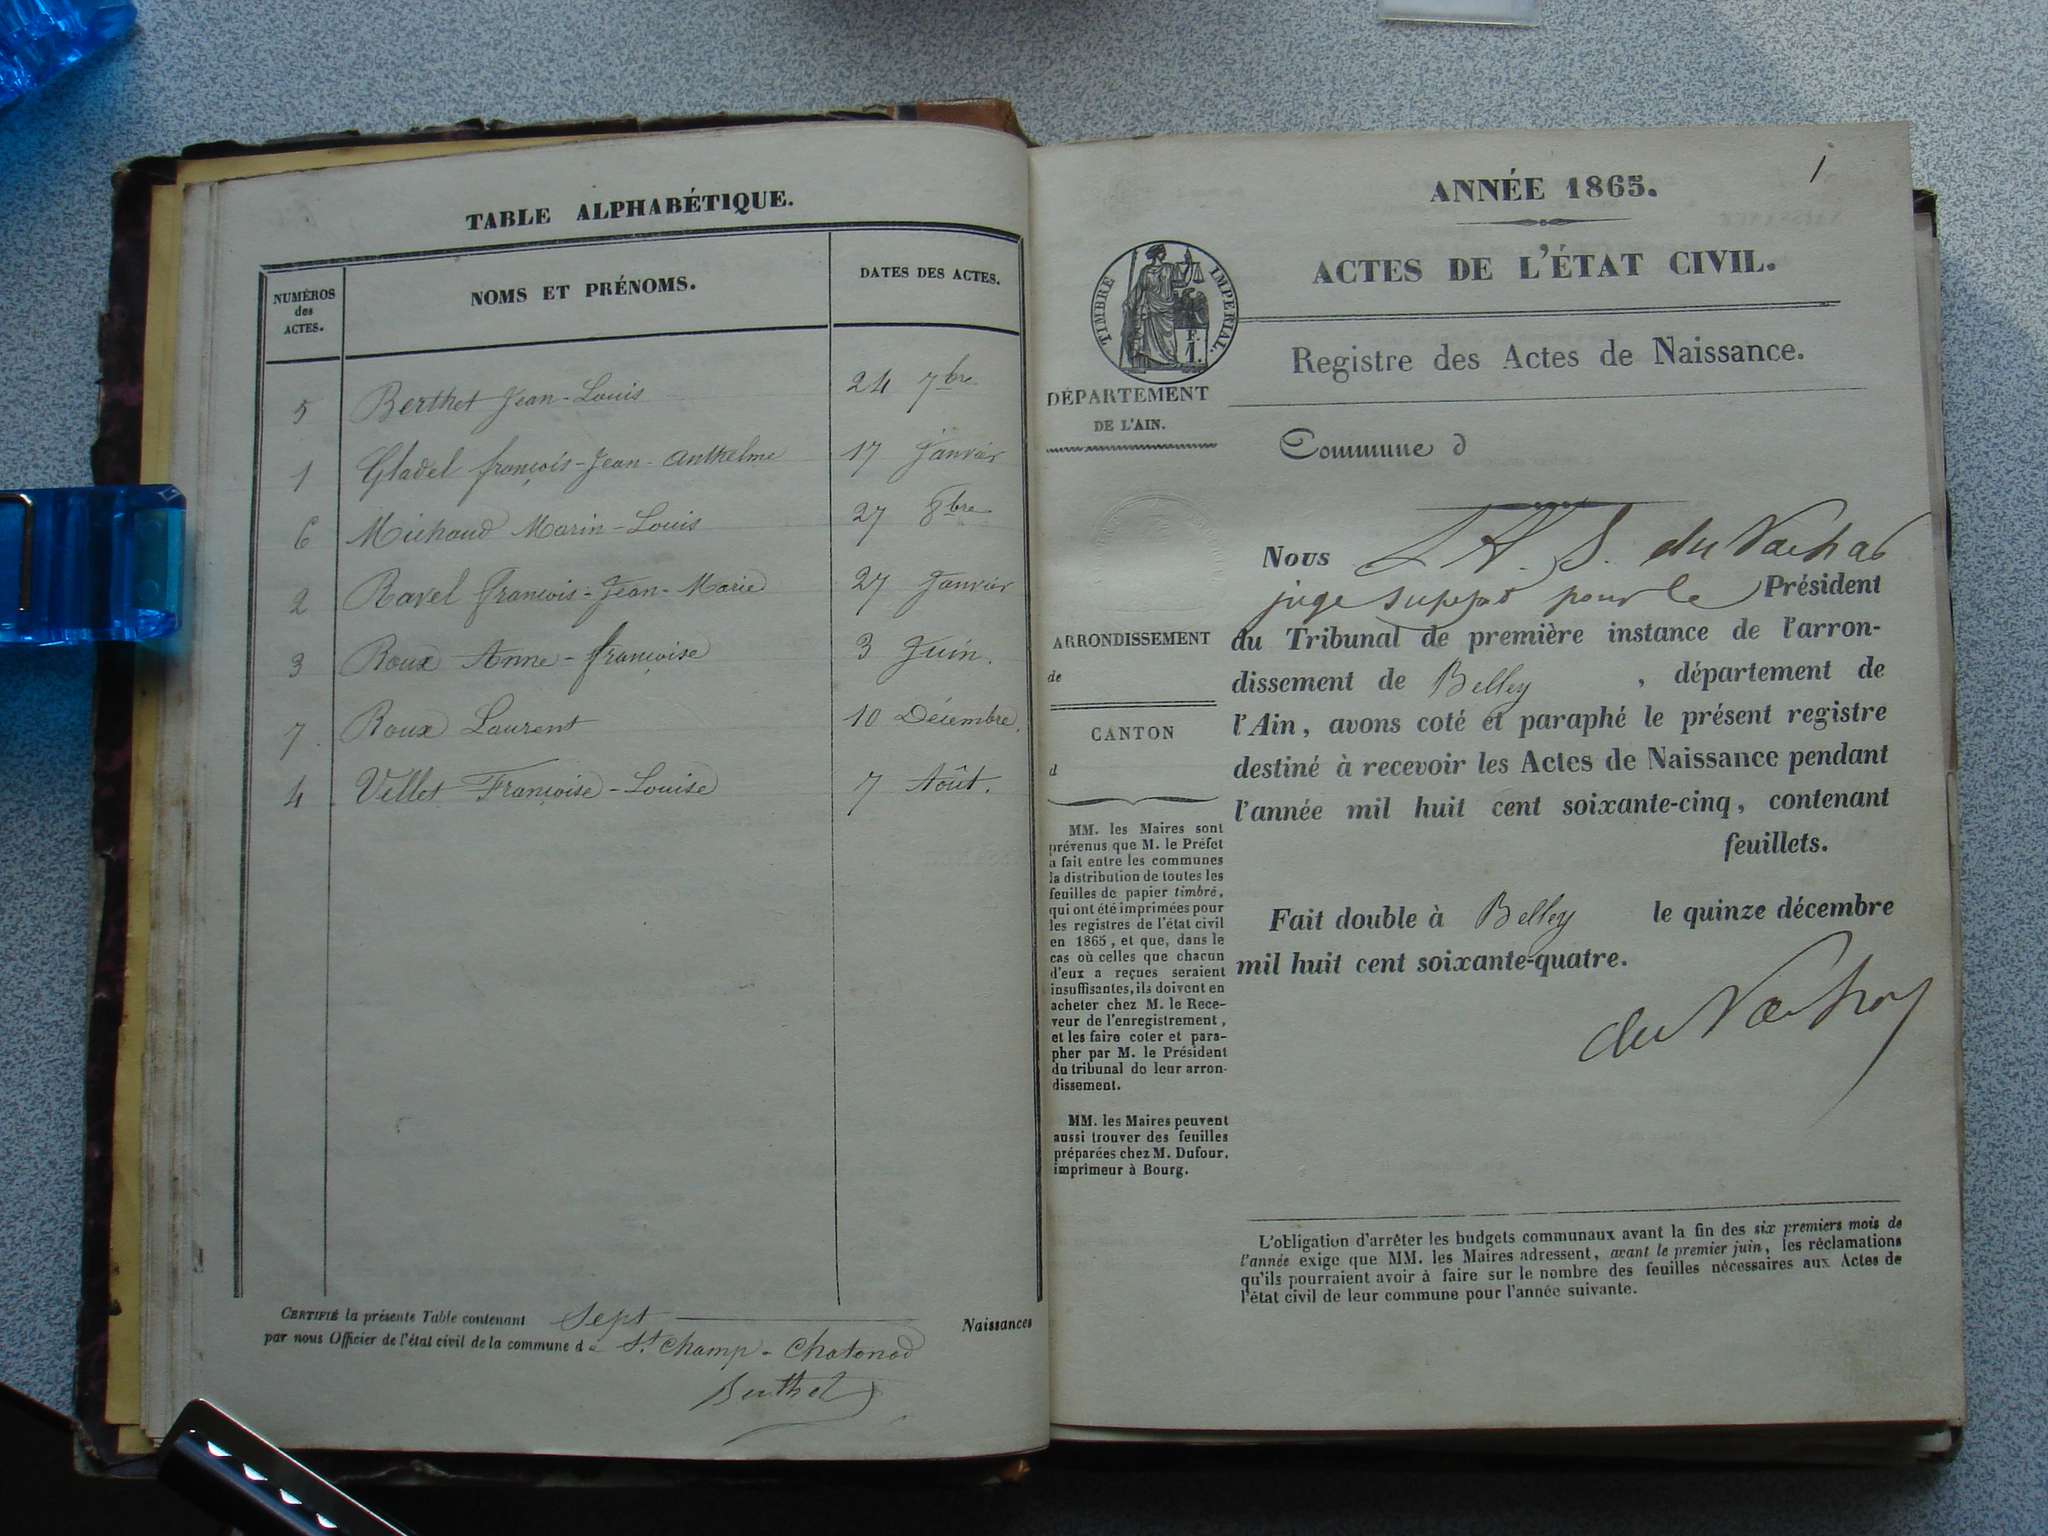 TABLE ALPHABÉTIQUE.
NUMÉROS des ACTES. NOMS ET PRÉNOMS. DATES DES ACTES.
5 Berthet Jean-Louis 24 7bre
1 Gladel françois-Jean-Anthelme 17 Janvier
6 Michaud Marin-Louis 27 8bre
2 Ravel françois-Jean-Marie 27 Janvier
3 Roux Anne-françoise 3 Juin.
7 Roux Laurent 10 Décembre.
4 Vellet Françoise-Louise 7 Août.
CERTIFIÉ la présente Table contenant Sept Naissances
par nous Officier de l'état civil de la commune de St. Champ-Chatonod
Berthet
1
ANNÉE 1865.
ACTES DE L'ÉTAT CIVIL.
TIMBRE IMPERIAL.
F.
1.
Registre des Actes de Naissance.
DÉPARTEMENT
DE L'AIN.
Commune d
ARRONDISSEMENT
de
CANTON
d
MM. les Maires sont
prévenus que M. le Préfet
a fait entre les communes
la distribution de toutes les
feuilles de papier timbré,
qui ont été imprimées pour
les registres de l'état civil
en 1865, et que, dans le
cas où celles que chacun
d'eux a reçues seraient
insuffisantes, ils doivent en
acheter chez M. le Rece-
veur de l'enregistrement,
et les faire coter et para-
pher par M. le Président
du tribunal de leur arron-
dissement.
MM. les Maires peuvent
aussi trouver des feuilles
préparées chez M. Dufour,
imprimeur à Bourg.
Nous du Vachat
juge suppt pour le Président
du Tribunal de première instance de l'arron-
dissement de Belley, département de
l'Ain, avons coté et paraphé le présent registre
destiné à recevoir les Actes de Naissance pendant
l'année mil huit cent soixante-cinq, contenant
feuillets.
Fait double à Belley le quinze décembre
mil huit cent soixante-quatre.
du Vachat
L'obligation d'arrêter les budgets communaux avant la fin des six premiers mois de
l'année exige que MM. les Maires adressent, avant le premier juin, les réclamations
qu'ils pourraient avoir à faire sur le nombre des feuilles nécessaires aux Actes de
l'état civil de leur commune pour l'année suivante.